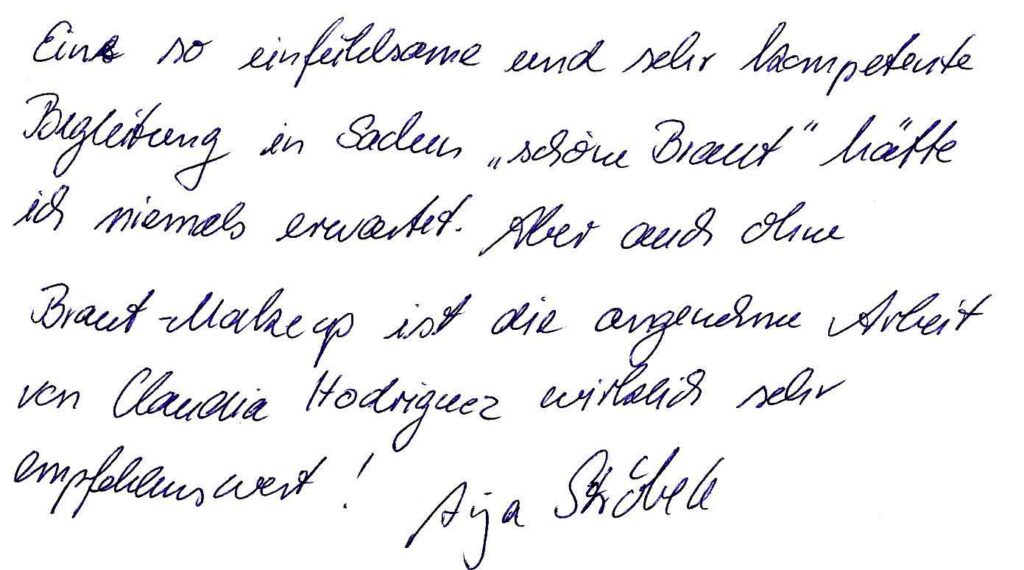 Eine so einfühlsame und sehr kompetente
Begleitung in Sachen „schöne Braut" hätte
ich niemals erwartet. Aber auch ohne
Braut-Makeup ist die angenehme Arbeit
von Claudia Hodriguez wirklich sehr
empfehlenswert!
Anja Ströbele